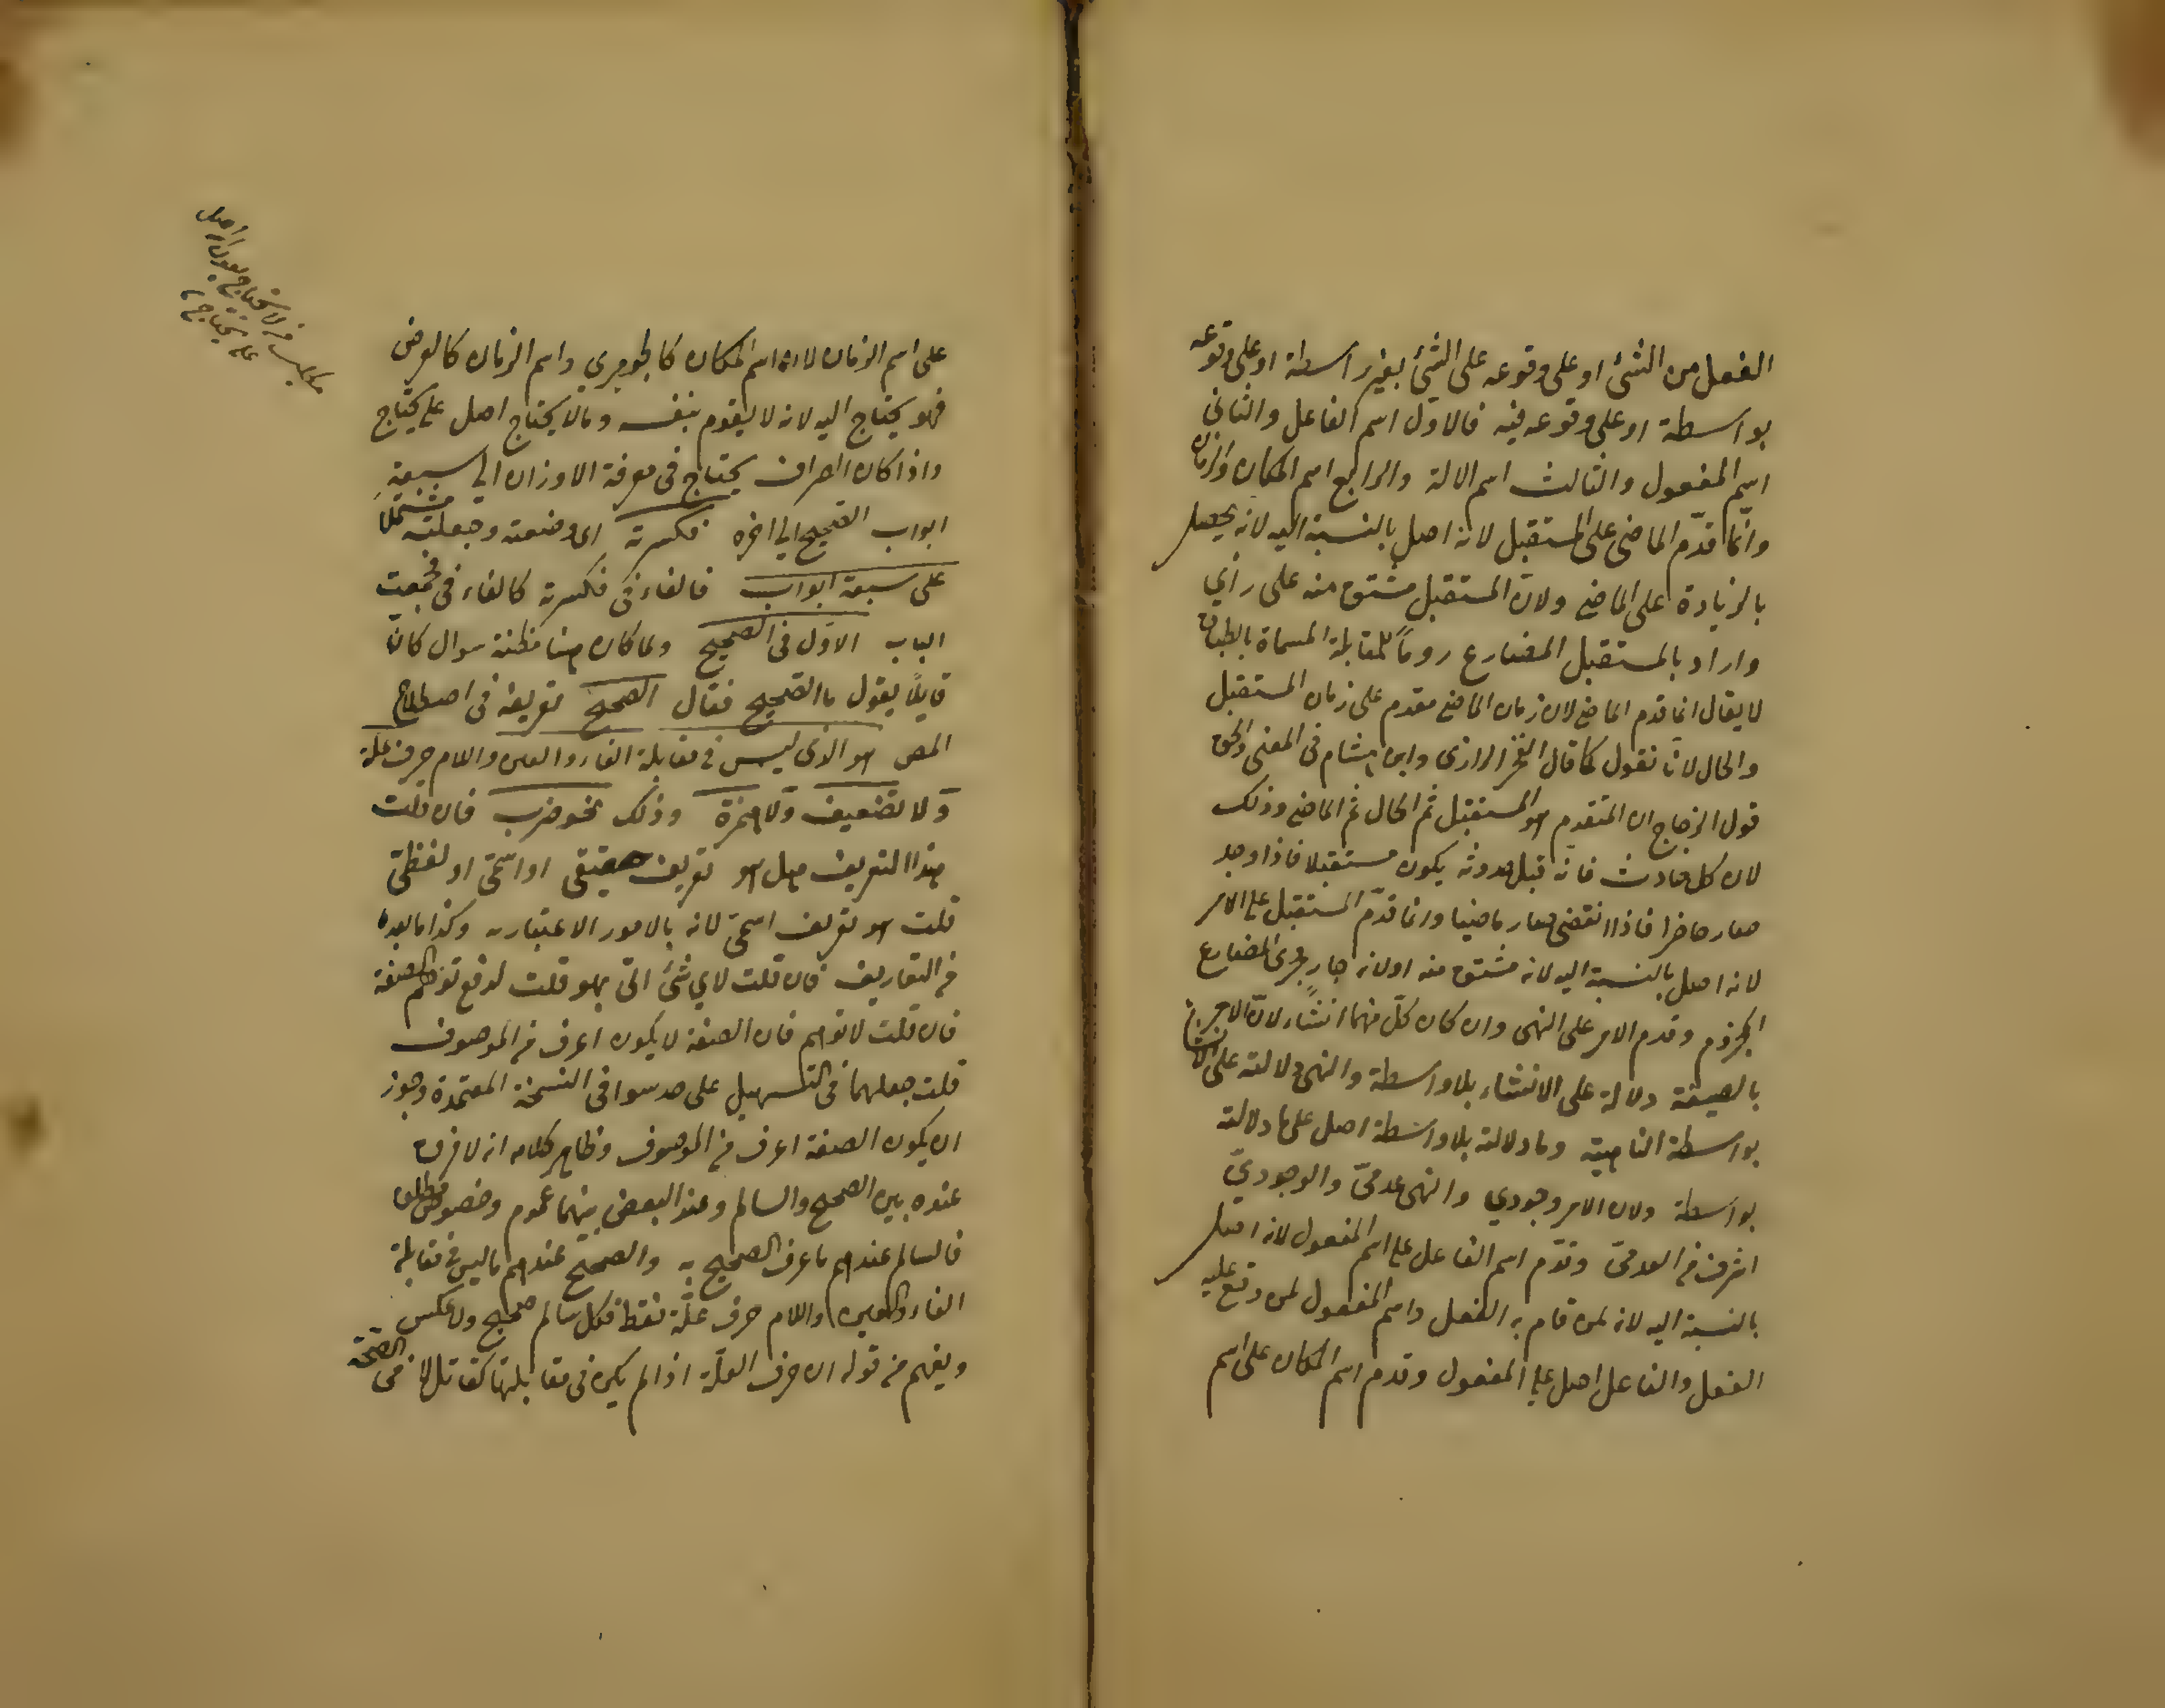 الفعل من الشئ او على وقوعه على الشئ بغير واسطة او على وقوعه
بواسطة او على وقوعه فيه فالاول اسم الفاعل والثانى
اسم المفعول والثالث اسم الالة والرابع اسم المكان والزمان
وانما قدّم الماضى على المستقبل لانه اصل بالنسبة اليه لانه يحصل
بالزيادة على الماضى ولان المستقبل مشتق منه على رأي
واراد بالمستقبل المضارع روماً للمقابلة المسماة بالطباق
لا يقال انما قدم الماضى لان زمان الماضى مقدم على زمان المستقبل
والحال لانا نقول كما قال الفخر الرازى وابن هشام فى المغنى والحق
قول الزجاج ان المتقدم هو المستقبل ثم الحال ثم الماضى وذلك
لان كل حادث فانه قبل حدوثه يكون مستقبلا فاذا وجد
صار حاضرا فاذا انقضى صار ماضيا وانما قدّم المستقبل على الامر
لانه اصل بالنسبة اليه لانه مشتق منه او لانه جارٍ مجرى المضارع
المجزوم وقدم الامر على النهى وان كان كلّ منهما انشاء لانّ الامر
بالصيغة دلالة على الانشاء بلا واسطة والنهى دلالته على الانشاء
بواسطة الناهية وما دلالته بلا واسطة اصل على ما دلالته
بواسطة ولان الامر وجودي والنهى عدمىّ والوجوديّ
اشرف من العدمىّ وقدّم اسم الفاعل على اسم المفعول لانه اصل
بالنسبة اليه لانه لمن قام به الفعل واسم المفعول لمن وقع عليه
الفعل والفاعل اصل على المفعول وقدم اسم المكان على اسم
على اسم الزمان لان اسم المكان كالجوهري واسم الزمان كالعرض
فهو يحتاج اليه لانه لا يقوم بنفسه وما لا يحتاج اصل على يحتاج
واذا كان الصراف يحتاج فى معرفة الاوزان الى سبعة
ابواب الصحيح الى اخره فكسرته اى وضعته وجعلته مشتملا
على سبعة ابواب فالفاء فى فكسرته كالفاء فى فجمعت
الباب الاوّل فى الصحيح ولما كان هنا مظنة سوال كانّ
قايلًا يقول ما الصحيح فقال الصحيح تعريفه فى اصطلاح
المص هو الذى ليس فى مقابلة الفاء والعين واللام حرف علة
ولا تضعيف ولا همزة وذلك نحو ضرب فان قلت
هذا التعريف هل هو تعريف حقيقى او اسمىّ او لفظىّ
قلت هو تعريف اسمىّ لانه بالامور الاعتباريه وكذا ما بعده
من التعاريف فان قلت لاي شئ اتى بهو قلت لدفع توهم الصفة
فان قلت لا توهم فان الصفة لا يكون اعرف من الموصوف
قلت جعلهما فى التسهيل على حد سوا فى النسخة المعتمدة وجوز
ان يكون الصفة اعرف من الموصوف وظاهر كلامه انه لا فرق
عنده بين الصحيح والسالم وعند البعض بينهما عموم وخصوص مطلق
فالسالم عندهم ما عرف الصحيح به والصحيح عندهم ما ليس فى مقابلة
الفاء والعين واللام حرف علّة فقط فكل سالم صحيح ولا عكس
ويفهم من قوله ان حرف العلّة اذا لم يكن فى مقابلتها كقاتل لا فى الصحة